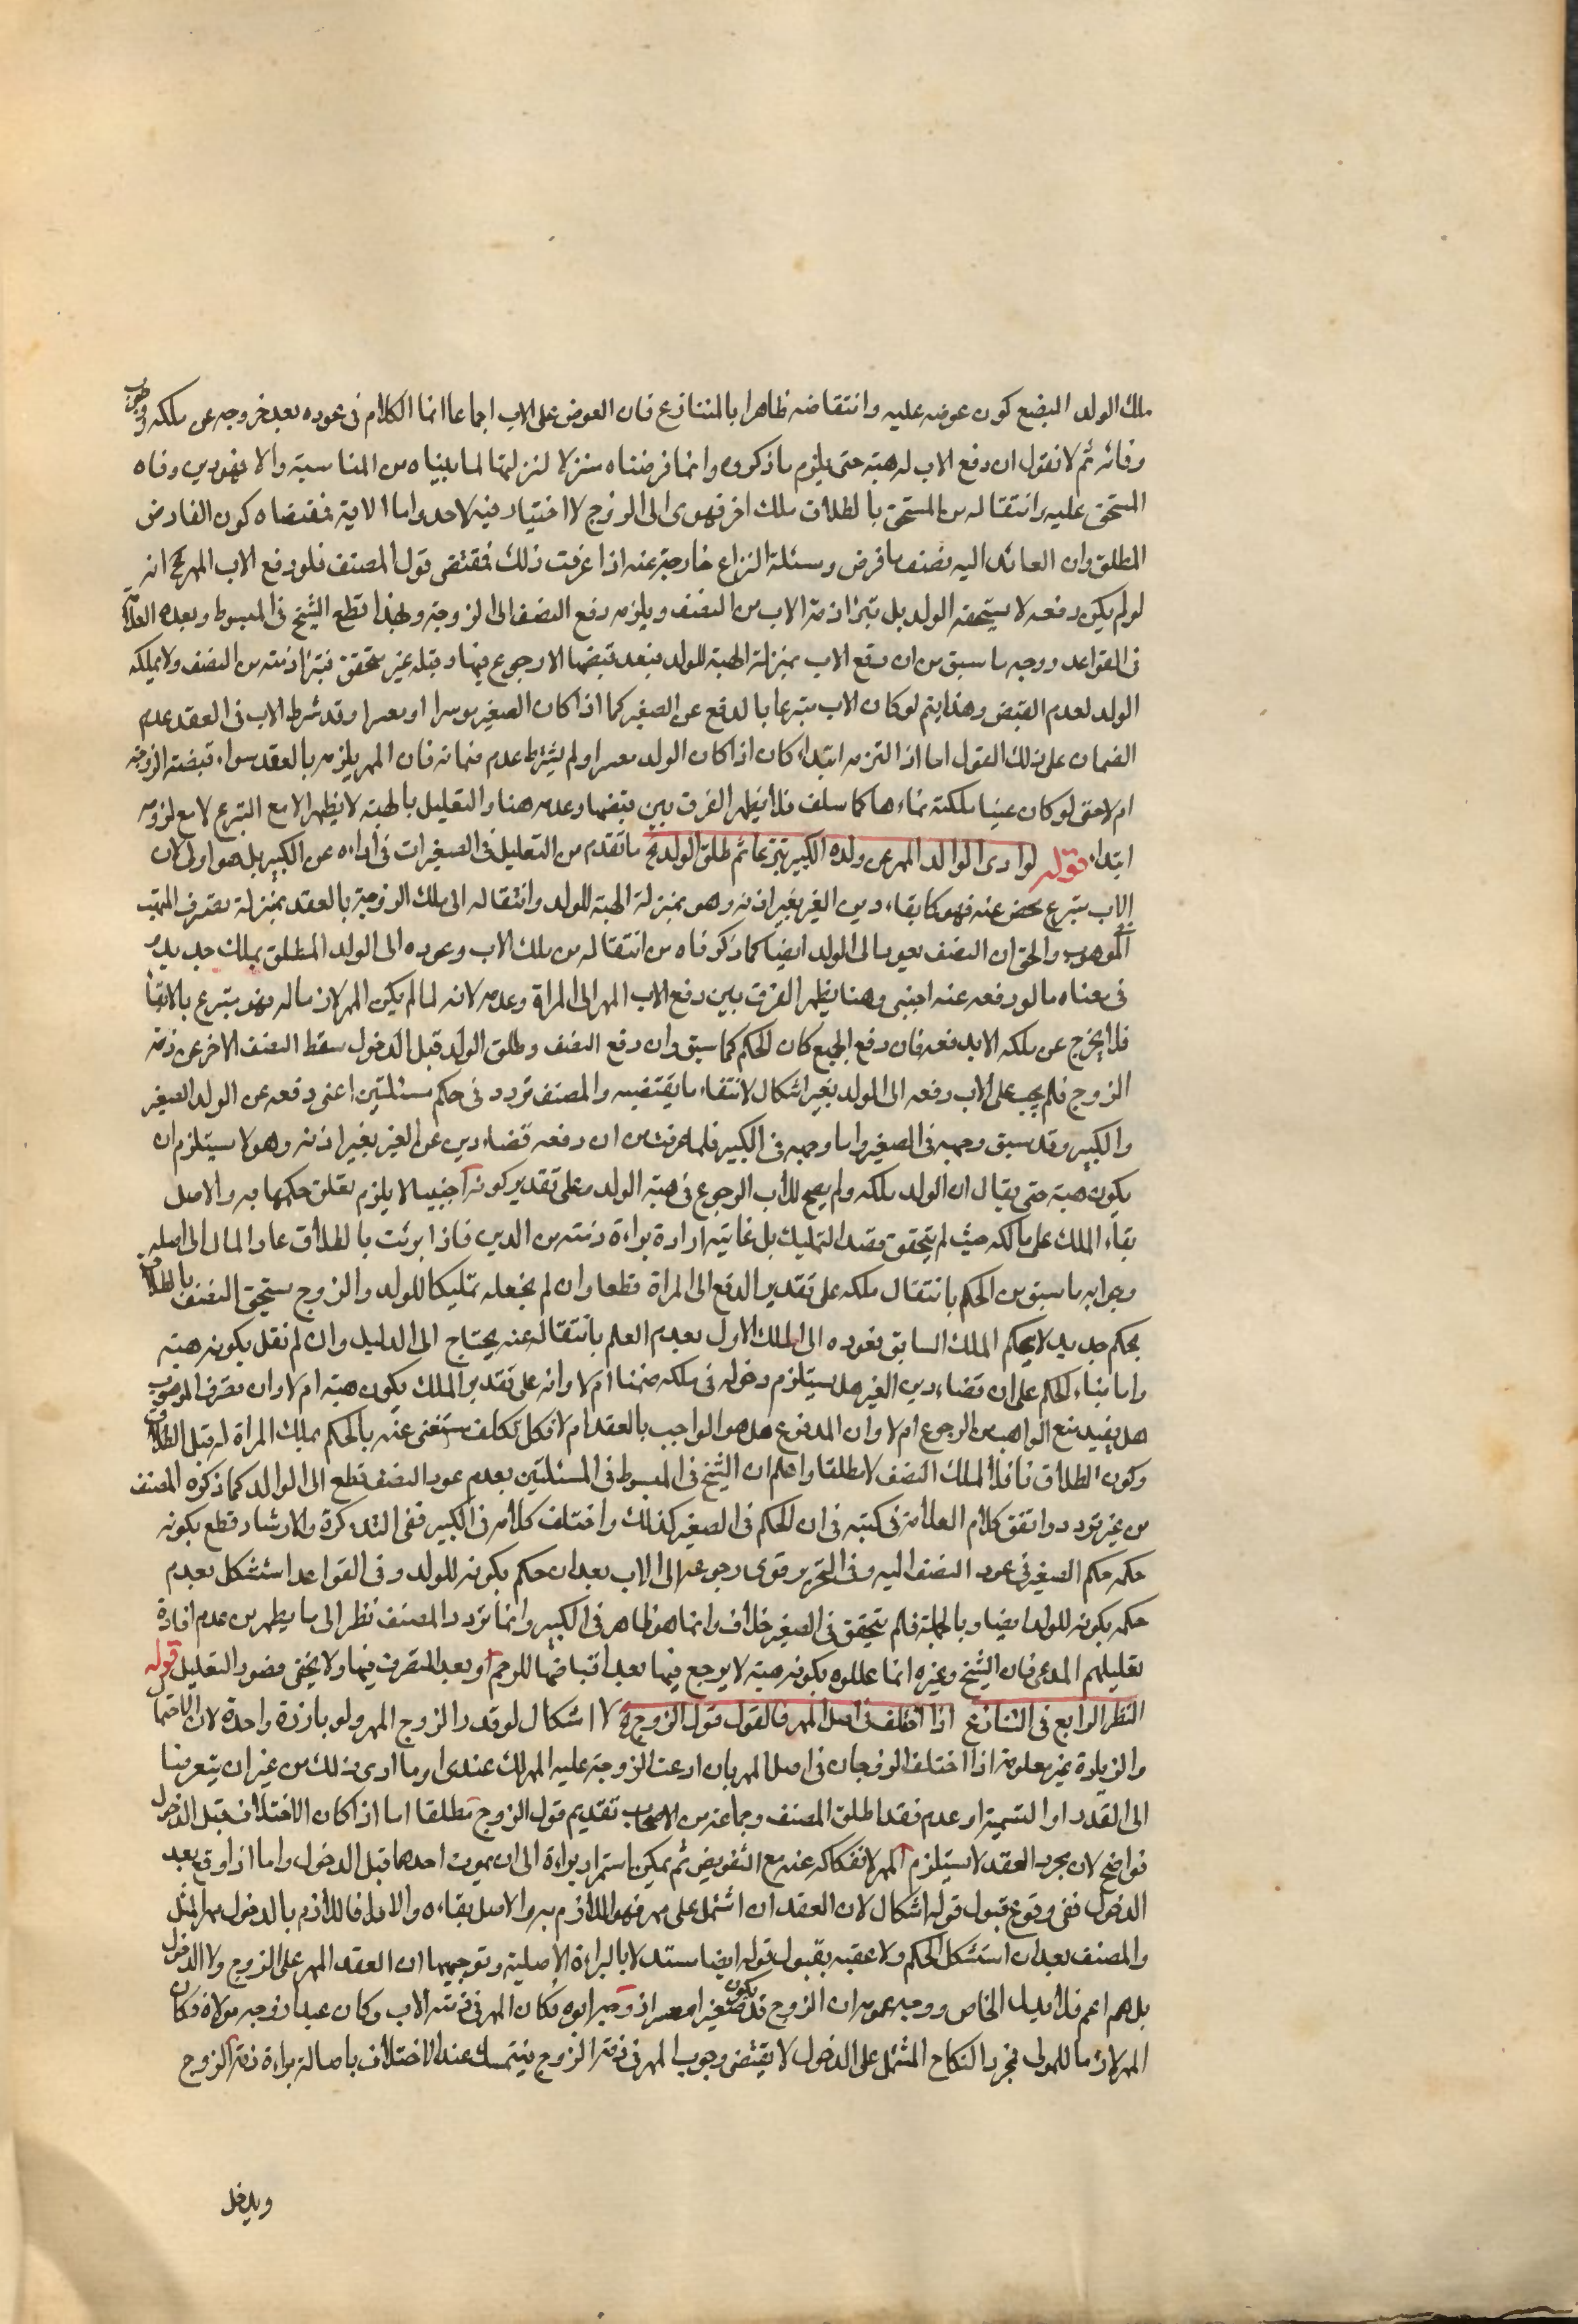 ملك الولد البضع كون عوضه عليه وانتقاضه ظاهرا بالمتنازع فان العوض على الاب اجماعا انما الكلام في عوده بعد خروجه عن ملكه
وفائه ثم لا نقول ان دفع الاب له هبة حتى يلزم ما ذكروه وانما فرضناه منزلا لنزلتها لما بيناه من المناسبة والا فهو دين وفاه
المستحق عليه وانتقاله من المستحق بالطلاق ملك اخر قهري الى الزوج لا اختيار فيه لاحد واما الاية فمقتضاه كون الفارض
المطلق وان العائد اليه نصف ما فرض ومسئلة النزاع خارجة عنه اذا عرفت ذلك فمقتضى قول المصنف فلو دفع الاب المهر الخ انه
لو لم يكن دفعه لا يستحقه الولد بل تبرا ذمة الاب من النصف ويلزمه دفع النصف الى الزوجة وبهذا قطع الشيخ في المبسوط وبعده العلامة
في القواعد ووجهه ما سبق من ان دفع الاب بمنزلة الهبة للولد فبعد قبضها لا رجوع فيها وقبله غير متحقق فتبرا ذمته من النصف ولا يملكه
الولد لعدم القبض وهذا يتم لو كان الاب متبرعا بالدفع عن الصغير كما اذا كان الصغير موسرا او معسرا وقد شرط الاب في العقد عدم
الضمان على ذلك القول اما اذا التزمه ابتداء كان اذا كان الولد معسرا ولم يشترط عدم ضمانه فان المهر يلزمه بالعقد سواء قبضته الزوجة
ام لا حتى لو كان عينا ملكته نماءها كما سلف فلا يظهر الفرق بين قبضها وعدمه هنا والتعليل بالهبة لا يظهر الا مع التبرع لا مع لزومه
ابتداء قوله لو ادى الوالد المهر عن ولده الكبير تبرعا ثم طلق الولد الخ ما تقدم من التعليل في الصغير ات في أداءه عن الكبير بل هو اولى لان
الاب متبرع محض عنه فهو كايفاء دين الغير بغير اذنه وهو بمنزلة الهبة للولد وانتقاله الى ملك الزوجة بالعقد بمنزلة تصرف المتهب
في الموهوب والحق ان النصف يعود الى الولد ايضا كما ذكرناه من انتقاله من ملك الاب وعوده الى الولد المطلق بملك جديد
في معناه ما لو دفعه عنه اجنبي وهنا يظهر الفرق بين دفع الاب المهر الى المراة وعدمه لانه لما لم يكن المهر لازما له فهو متبرع بالايفاء
فلا يخرج عن ملكه الا بدفعه فان دفع الجميع كان الحكم كما سبق وان دفع النصف وطلق الولد قبل الدخول سقط النصف الاخر عن ذمة
الزوج فلم يجب على الاب دفعه الى الولد بغير اشكال لانتفاء ما يقتضيه والمصنف تردد في حكم مسئلتين اعنى دفعه عن الولد الصغير
والكبير وقد سبق وجهه في الصغير واما وجهه في الكبير فلما عرفت من ان دفعه قضاء دين عن الغير بغير اذنه وهو لا يستلزم ان
يكون هبة حتى يقال ان الولد ملكه ولم يصح للأب الرجوع في هبة الولد وعلى تقدير كونه اجنبيا لا يلزم تعلق حكمها به والاصل
بقاء الملك على مالكه حيث لم يتحقق قصد التمليك بل غايته ارادة براءة ذمته من الدين فاذا برئت بالطلاق عاد المال الى اصله
وجوابه ما سبق من الحكم بانتقال ملكه على تقدير الدفع الى المراة قطعا وان لم نجعله تمليكا للولد والزوج يستحق النصف بالطلاق
بحكم جديد لا بحكم الملك السابق فعوده الى الملك الاول بعدم العلم بانتقاله عنه يحتاج الى الدليل وان لم نقل بكونه هبة
واما بناء الحكم على ان قضاء دين الغير هل يستلزم دخوله في ملكه ضمنا ام لا وانه على تقدير الملك يكون هبة ام لا وان تصرف الموهوب
هل يفيد منع الواهب من الرجوع ام لا وان المدفوع هل هو الواجب بالعقد ام لا فكل تكلف مستغنى عنه بالحكم بملك المراة له قبل الطلاق
وكون الطلاق ناقلا لملك النصف لا مطلقا واعلم ان الشيخ في المبسوط في المسئلتين بعدم عود النصف قطع الى الوالد كما ذكره المصنف
من غير تردد واتفق كلام العلامة في كتبه في ان الحكم في الصغير كذلك واختلف كلامه في الكبير ففي التذكرة والارشاد قطع بكونه
حكمه حكم الصغير في عود النصف اليه وفي التحرير قوى رجوعه الى الاب بعد ان حكم بكونه للولد وفي القواعد استشكل بعدم
حكمه بكونه للولد ايضا وبالجملة فلم يتحقق في الصغير خلاف وانما هو ظاهر في الكبير وانما تردد المصنف نظرا الى ما يظهر من عدم افادة
تعليلهم المدعى فان الشيخ وغيره انما عللوه بكونه هبة لا يرجع فيها بعد اقباضها للرحم او بعد التصرف فيها ولا يخفى قصور التعليل قوله
النظر الرابع في التنازع اذا اختلف في اصل المهر فالقول قول الزوج لا اشكال لو قدر الزوج المهر ولو بارزة واحدة لان الاحتمال
والزيادة غير معلومة اذا اختلف الزوجان في اصل المهر بان ادعت الزوجة عليه المهر لك عندى او ما ادى ذلك من غير ان يتعرضا
الى القدر او التسمية او عدمه فقد اطلق المصنف وجماعة من الاصحاب تقديم قول الزوج مطلقا اما اذا كان الاختلاف قبل الدخول
فواضح لان مجرد العقد لا يستلزم المهر لانفكاكه عنه مع التفويض ثم يمكن استمرار براءة الى ان يموت احدهما قبل الدخول واما اذا وقع بعد
الدخول ففي وقوع قبول قوله اشكال لان العقد ان اشتمل على مهر فهو اللازم به والاصل بقاءه والا فاللازم بالدخول مهر المثل
والمصنف بعد ان استشكل الحكم ولا عقبه بقبول قوله ايضا مستدلا بالبراءة الاصلية وتوجيهها ان العقد المهر على الزوج ولا الدخول
بل هم اعم فلا يدل الخاص ووجه عمومه ان الزوج قد يكون صغيرا معسرا زوجه ابوه فكان المهر في ذمة الاب وكان عبدا زوجه مولاه فكان
المهر لازما للمولى فمجرد النكاح المشتمل على الدخول لا يقتضى وجوب المهر في ذمة الزوج فيتمسك عند الاختلاف باصالة براءة ذمة الزوج
ويدخل